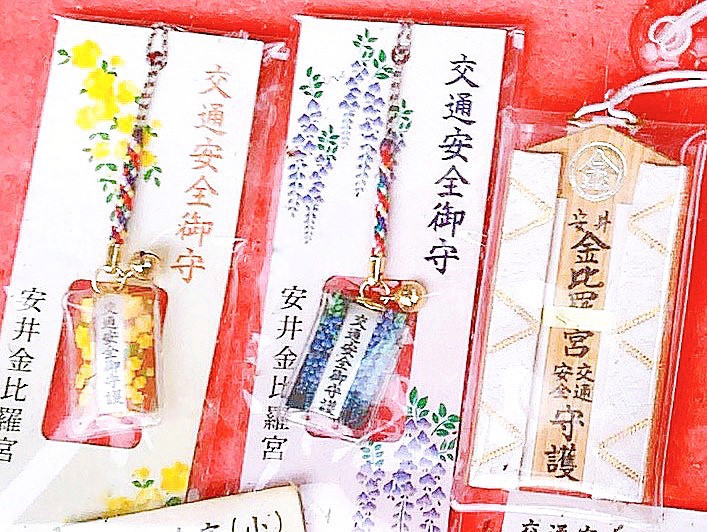 交通安全御守
安井金比羅宮
交通安全御守護
交通安全御守
安井金比羅宮
交通安全御守護
金
安井
金比羅宮
交通
安全
守護
(小)
交通安全